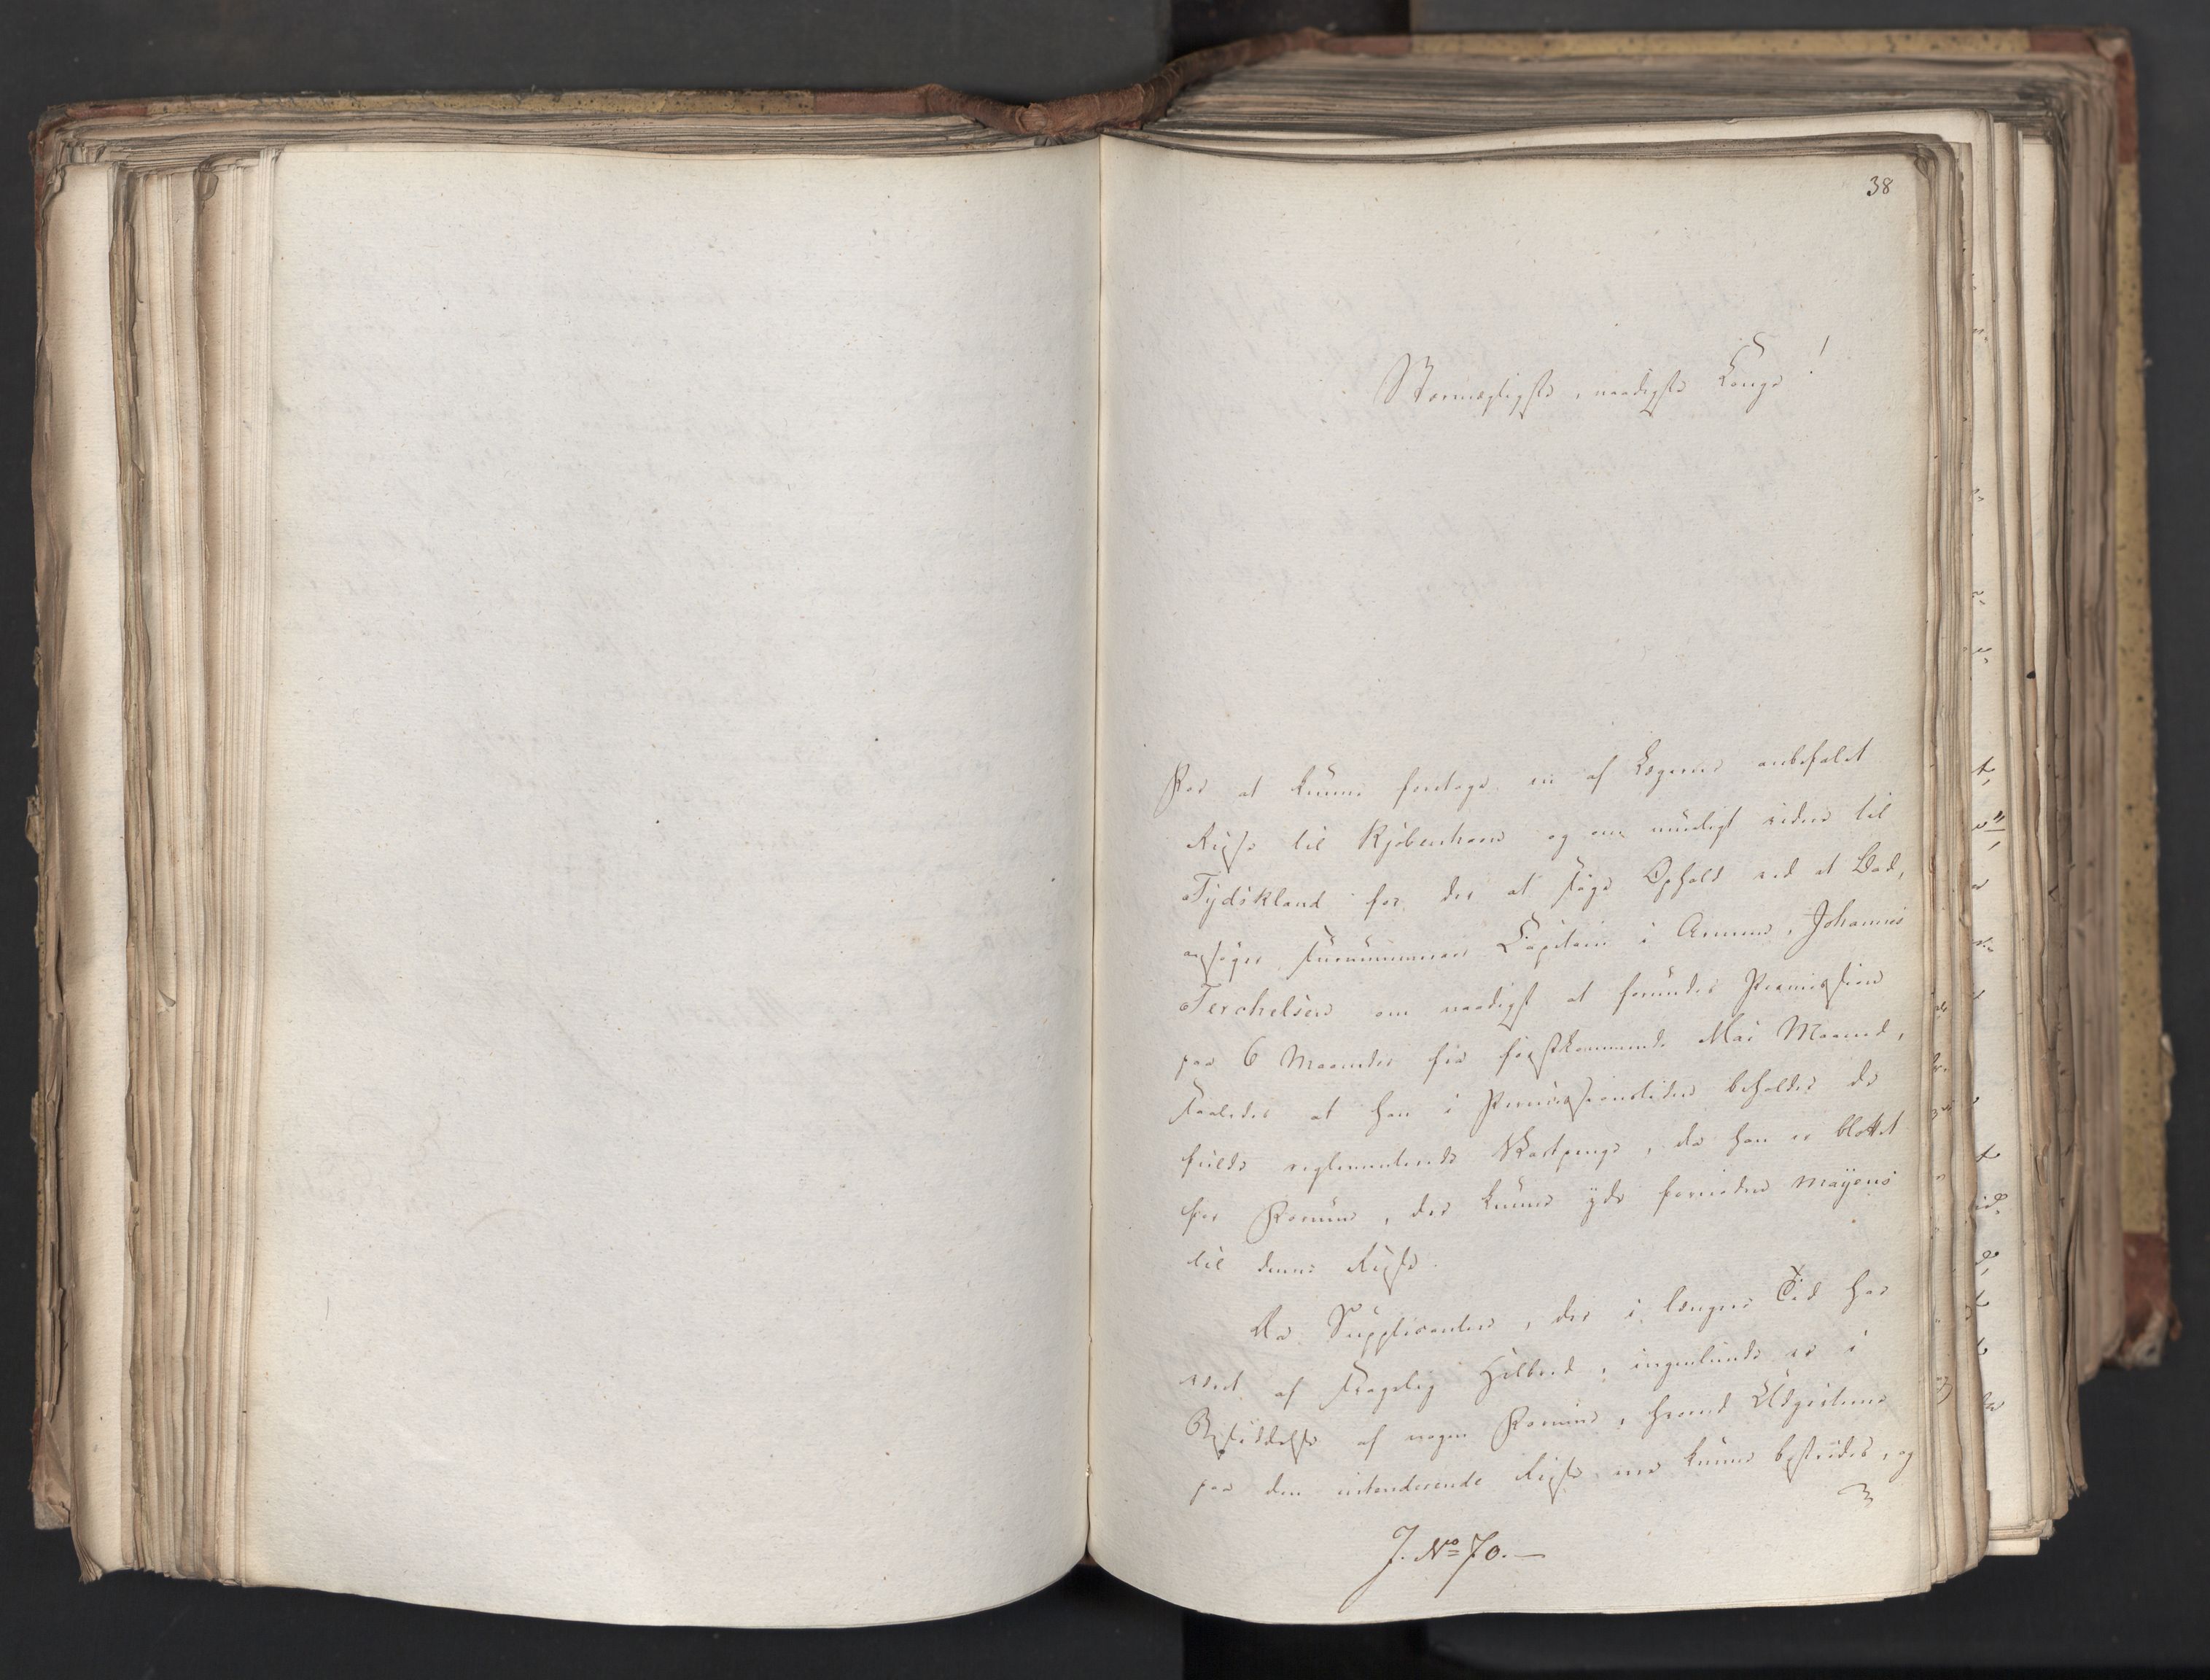 38
Stormægtigste, naadigste Konge!
For at kunne foretage en af Lægerne anbefalet
Reise til Kjöbenhavn og om mueligt videre til
Tydskland for der at søge Ophold ved et Bad,
ansøger Surnumerair Capitain i Armeen, Johannes
Terchelsen om naadigst at forundes Permission
paa 6 Maaneder fra førstkommende Mai Maaned,
saaledes at han i Permissionstiden beholder de
fulde reglementerede Vartpenge, da han er blottet
for Formue, der kunne yde fornöden Mayens
til denne Reise.
Da Supplicanten, der i længere Tid har
vært af svagelig Helbred, ingenlunde er i
Besiddelse af nogen Formue, hvoraf Udgivterne
paa den intenderende Reise vil kunne bestrides, og
J. No 70.—